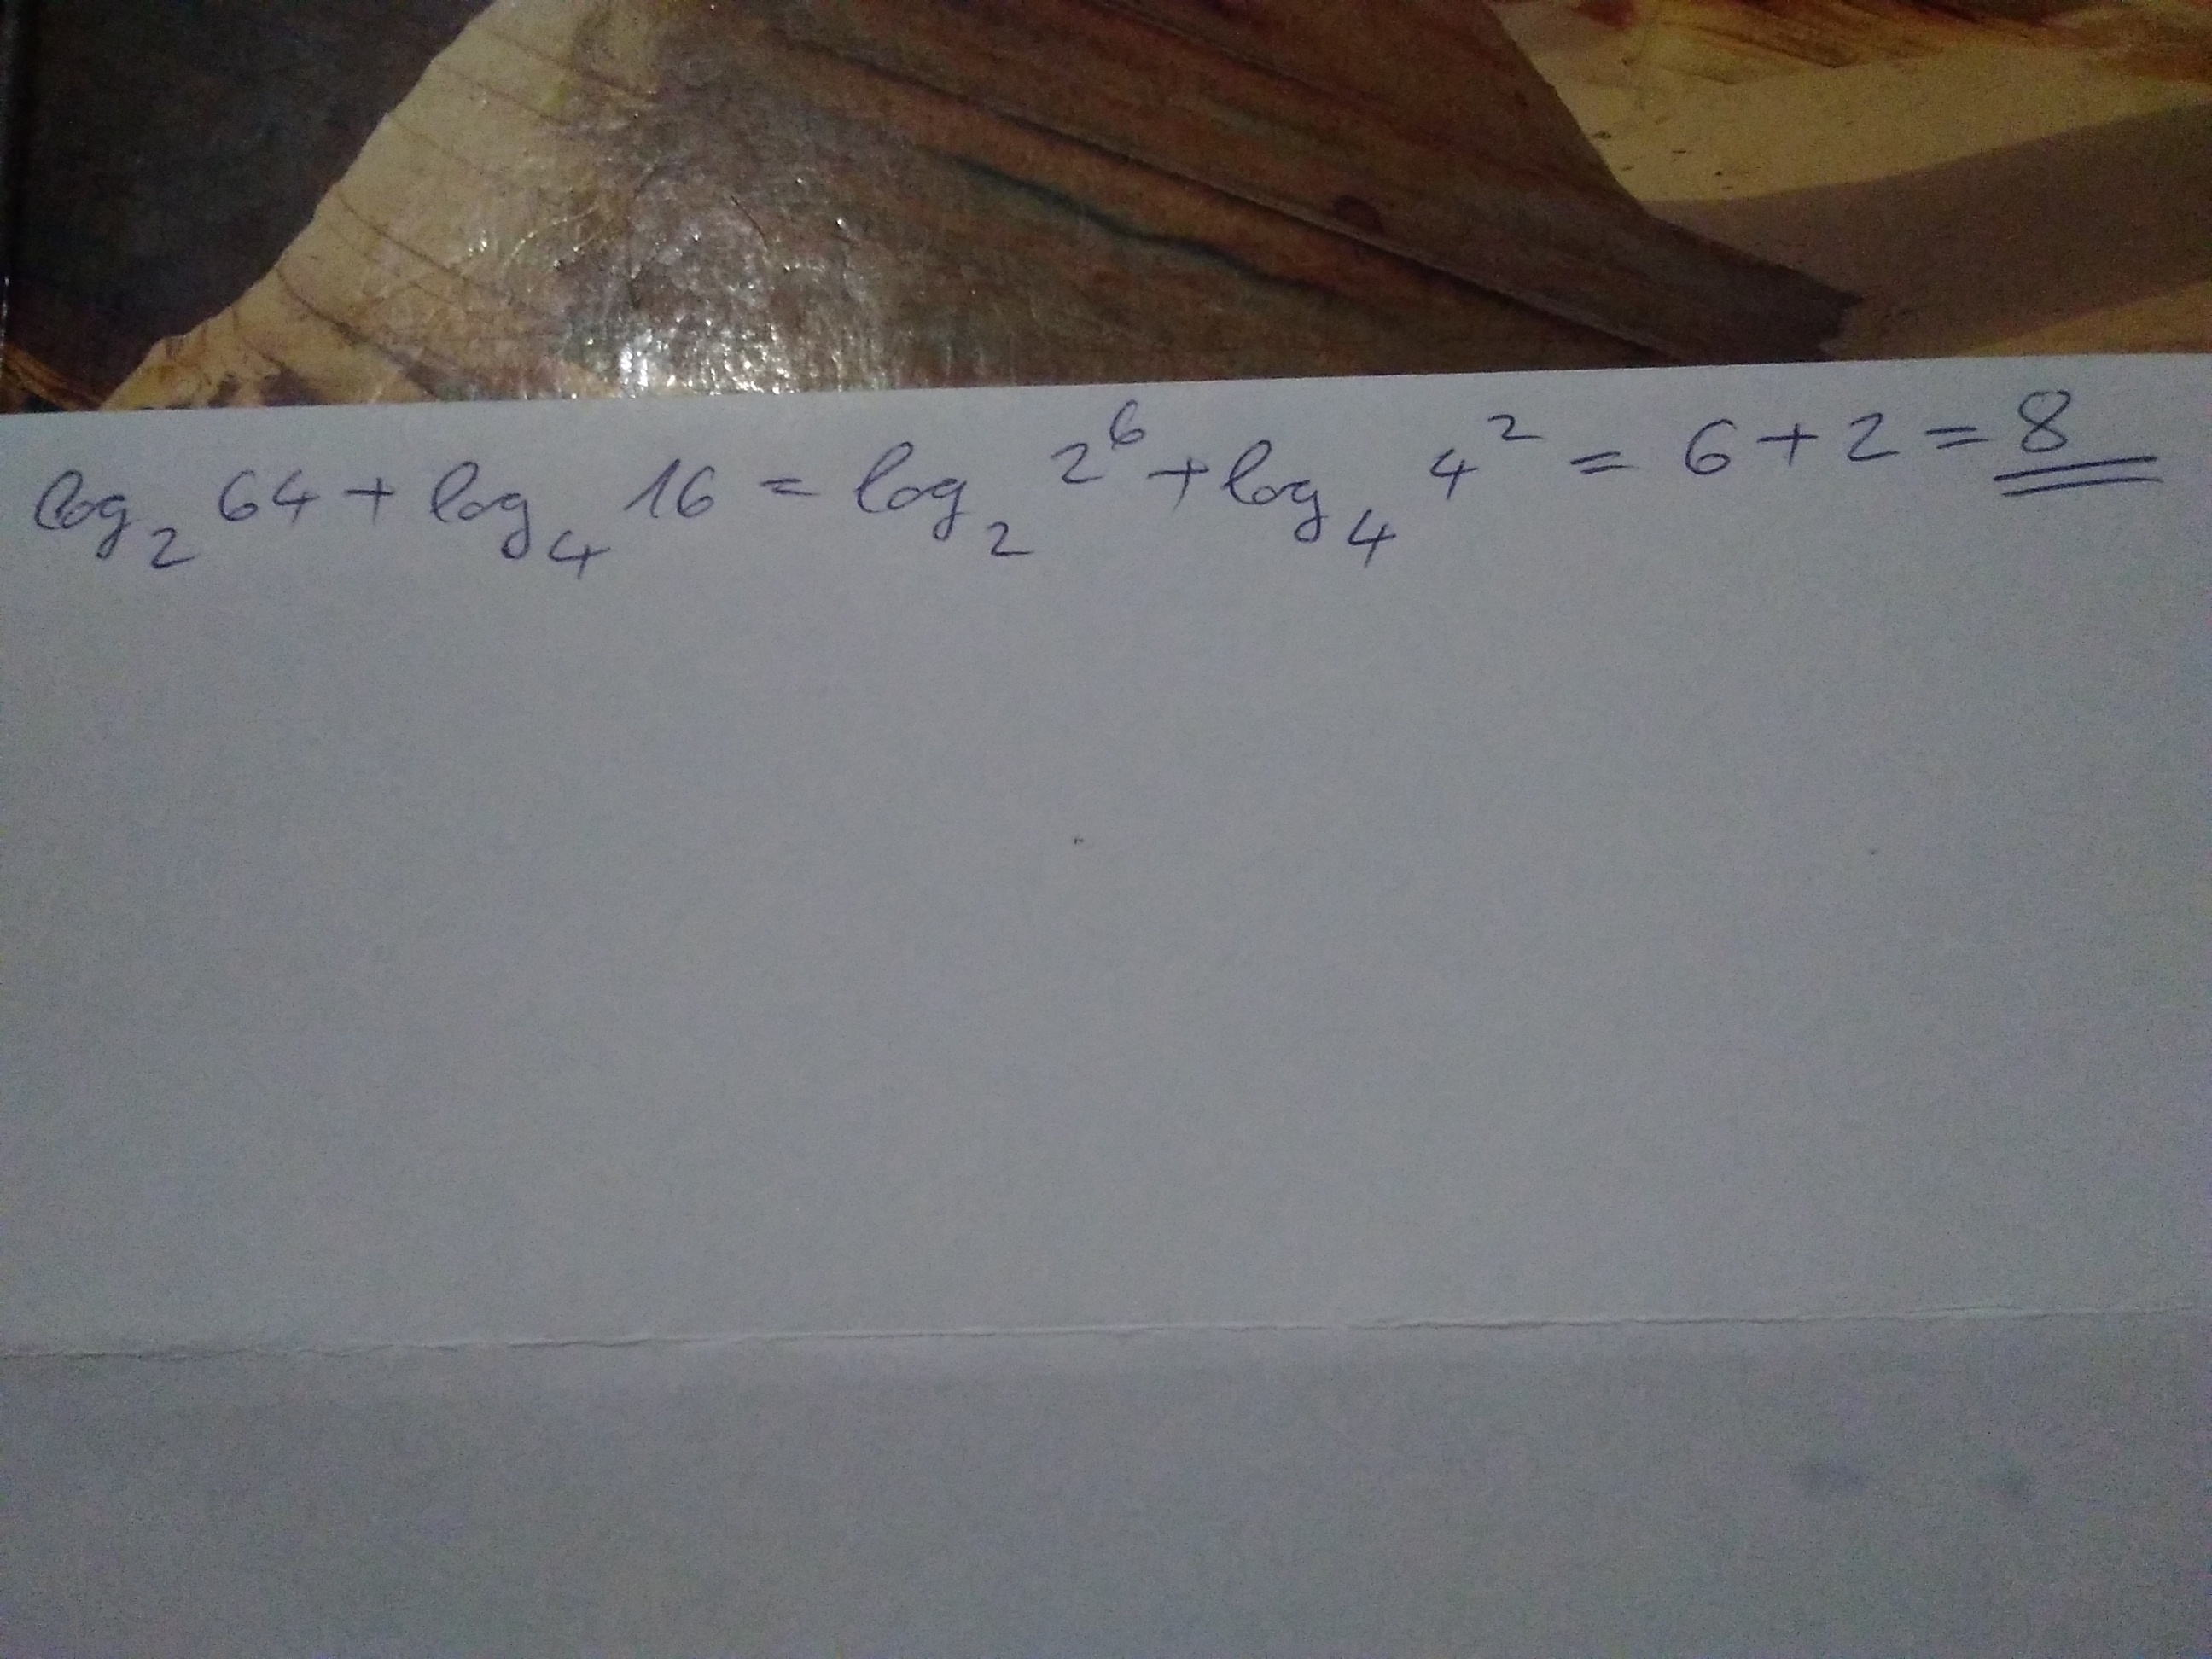 log₂ 64 + log₄ 16 = log₂ 2⁶ + log₄ 4² = 6 + 2 = 8